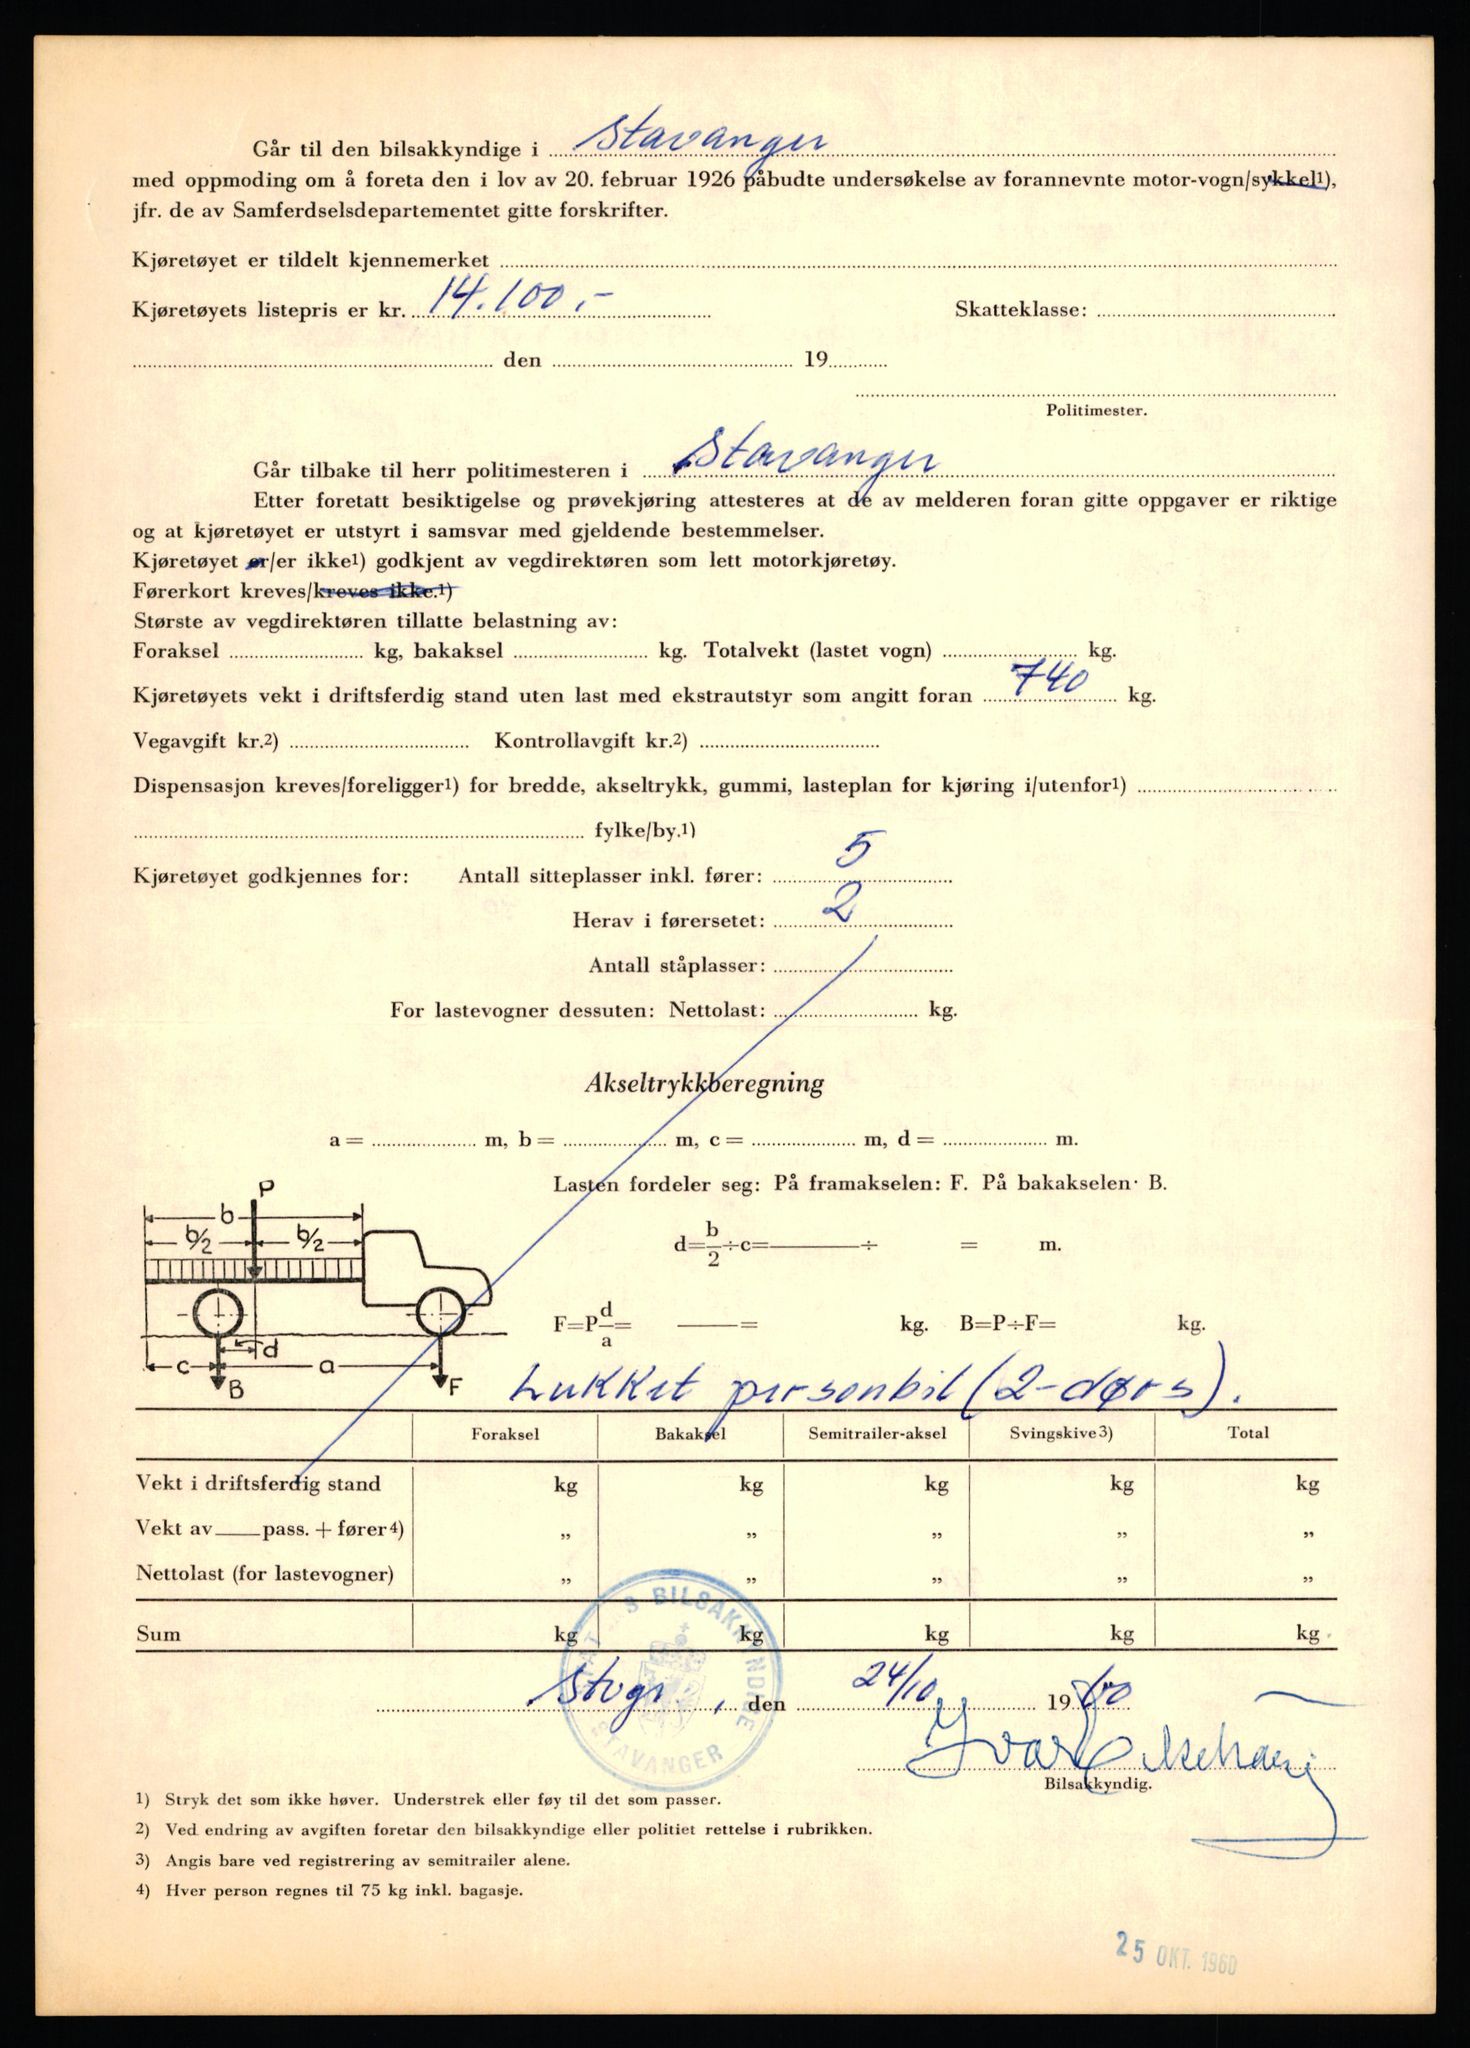 Går til den bilsakkyndige i Stavanger
med oppmoding om å foreta den i lov av 20. februar 1926 påbudte undersøkelse av forannevnte motor-vogn/sykkel1),
jfr. de av Samferdselsdepartementet gitte forskrifter.
Kjøretøyet er tildelt kjennemerket
Kjøretøyets listepris er kr. 14.100,- Skatteklasse:
den 19
Politimester.
Går tilbake til herr politimesteren i Stavanger
Etter foretatt besiktigelse og prøvekjøring attesteres at de av melderen foran gitte oppgaver er riktige
og at kjøretøyet er utstyrt i samsvar med gjeldende bestemmelser.
Kjøretøyet er/er ikke1) godkjent av vegdirektøren som lett motorkjøretøy.
Førerkort kreves/kreves ikke.1)
Største av vegdirektøren tillatte belastning av:
Foraksel kg, bakaksel kg. Totalvekt (lastet vogn) kg.
Kjøretøyets vekt i driftsferdig stand uten last med ekstrautstyr som angitt foran 740 kg.
Vegavgift kr.2) Kontrollavgift kr.2)
Dispensasjon kreves/foreligger1) for bredde, akseltrykk, gummi, lasteplan for kjøring i/utenfor1)
fylke/by.1)
Kjøretøyet godkjennes for: Antall sitteplasser inkl. fører: 5
Herav i førersetet: 2
Antall ståplasser:
For lastevogner dessuten: Nettolast: kg.
Akseltrykkberegning
a = m, b = m, c = m, d = m.
Lasten fordeler seg: På framakselen: F. På bakakselen· B.
P
b
b/2 b/2
d=b/2÷c= ÷ = m.
F=P d/a= = kg. B=P÷F= kg.
d
c a
B F
Lukket personbil (2-dørs).
Foraksel Bakaksel Semitrailer-aksel Svingskive3) Total
Vekt i driftsferdig stand kg kg kg kg kg
Vekt av pass. + fører4) „ „ „ „ „
Nettolast (for lastevogner) „ „ „ „ „
Sum kg kg kg kg kg
STAT S BILSAKKYNDIGE
STAVANGER
Stvgr., den 24/10 1960
Ivar
Bilsakkyndig.
1) Stryk det som ikke høver. Understrek eller føy til det som passer.
2) Ved endring av avgiften foretar den bilsakkyndige eller politiet rettelse i rubrikken.
3) Angis bare ved registrering av semitrailer alene.
4) Hver person regnes til 75 kg inkl. bagasje.
25 OKT. 1960